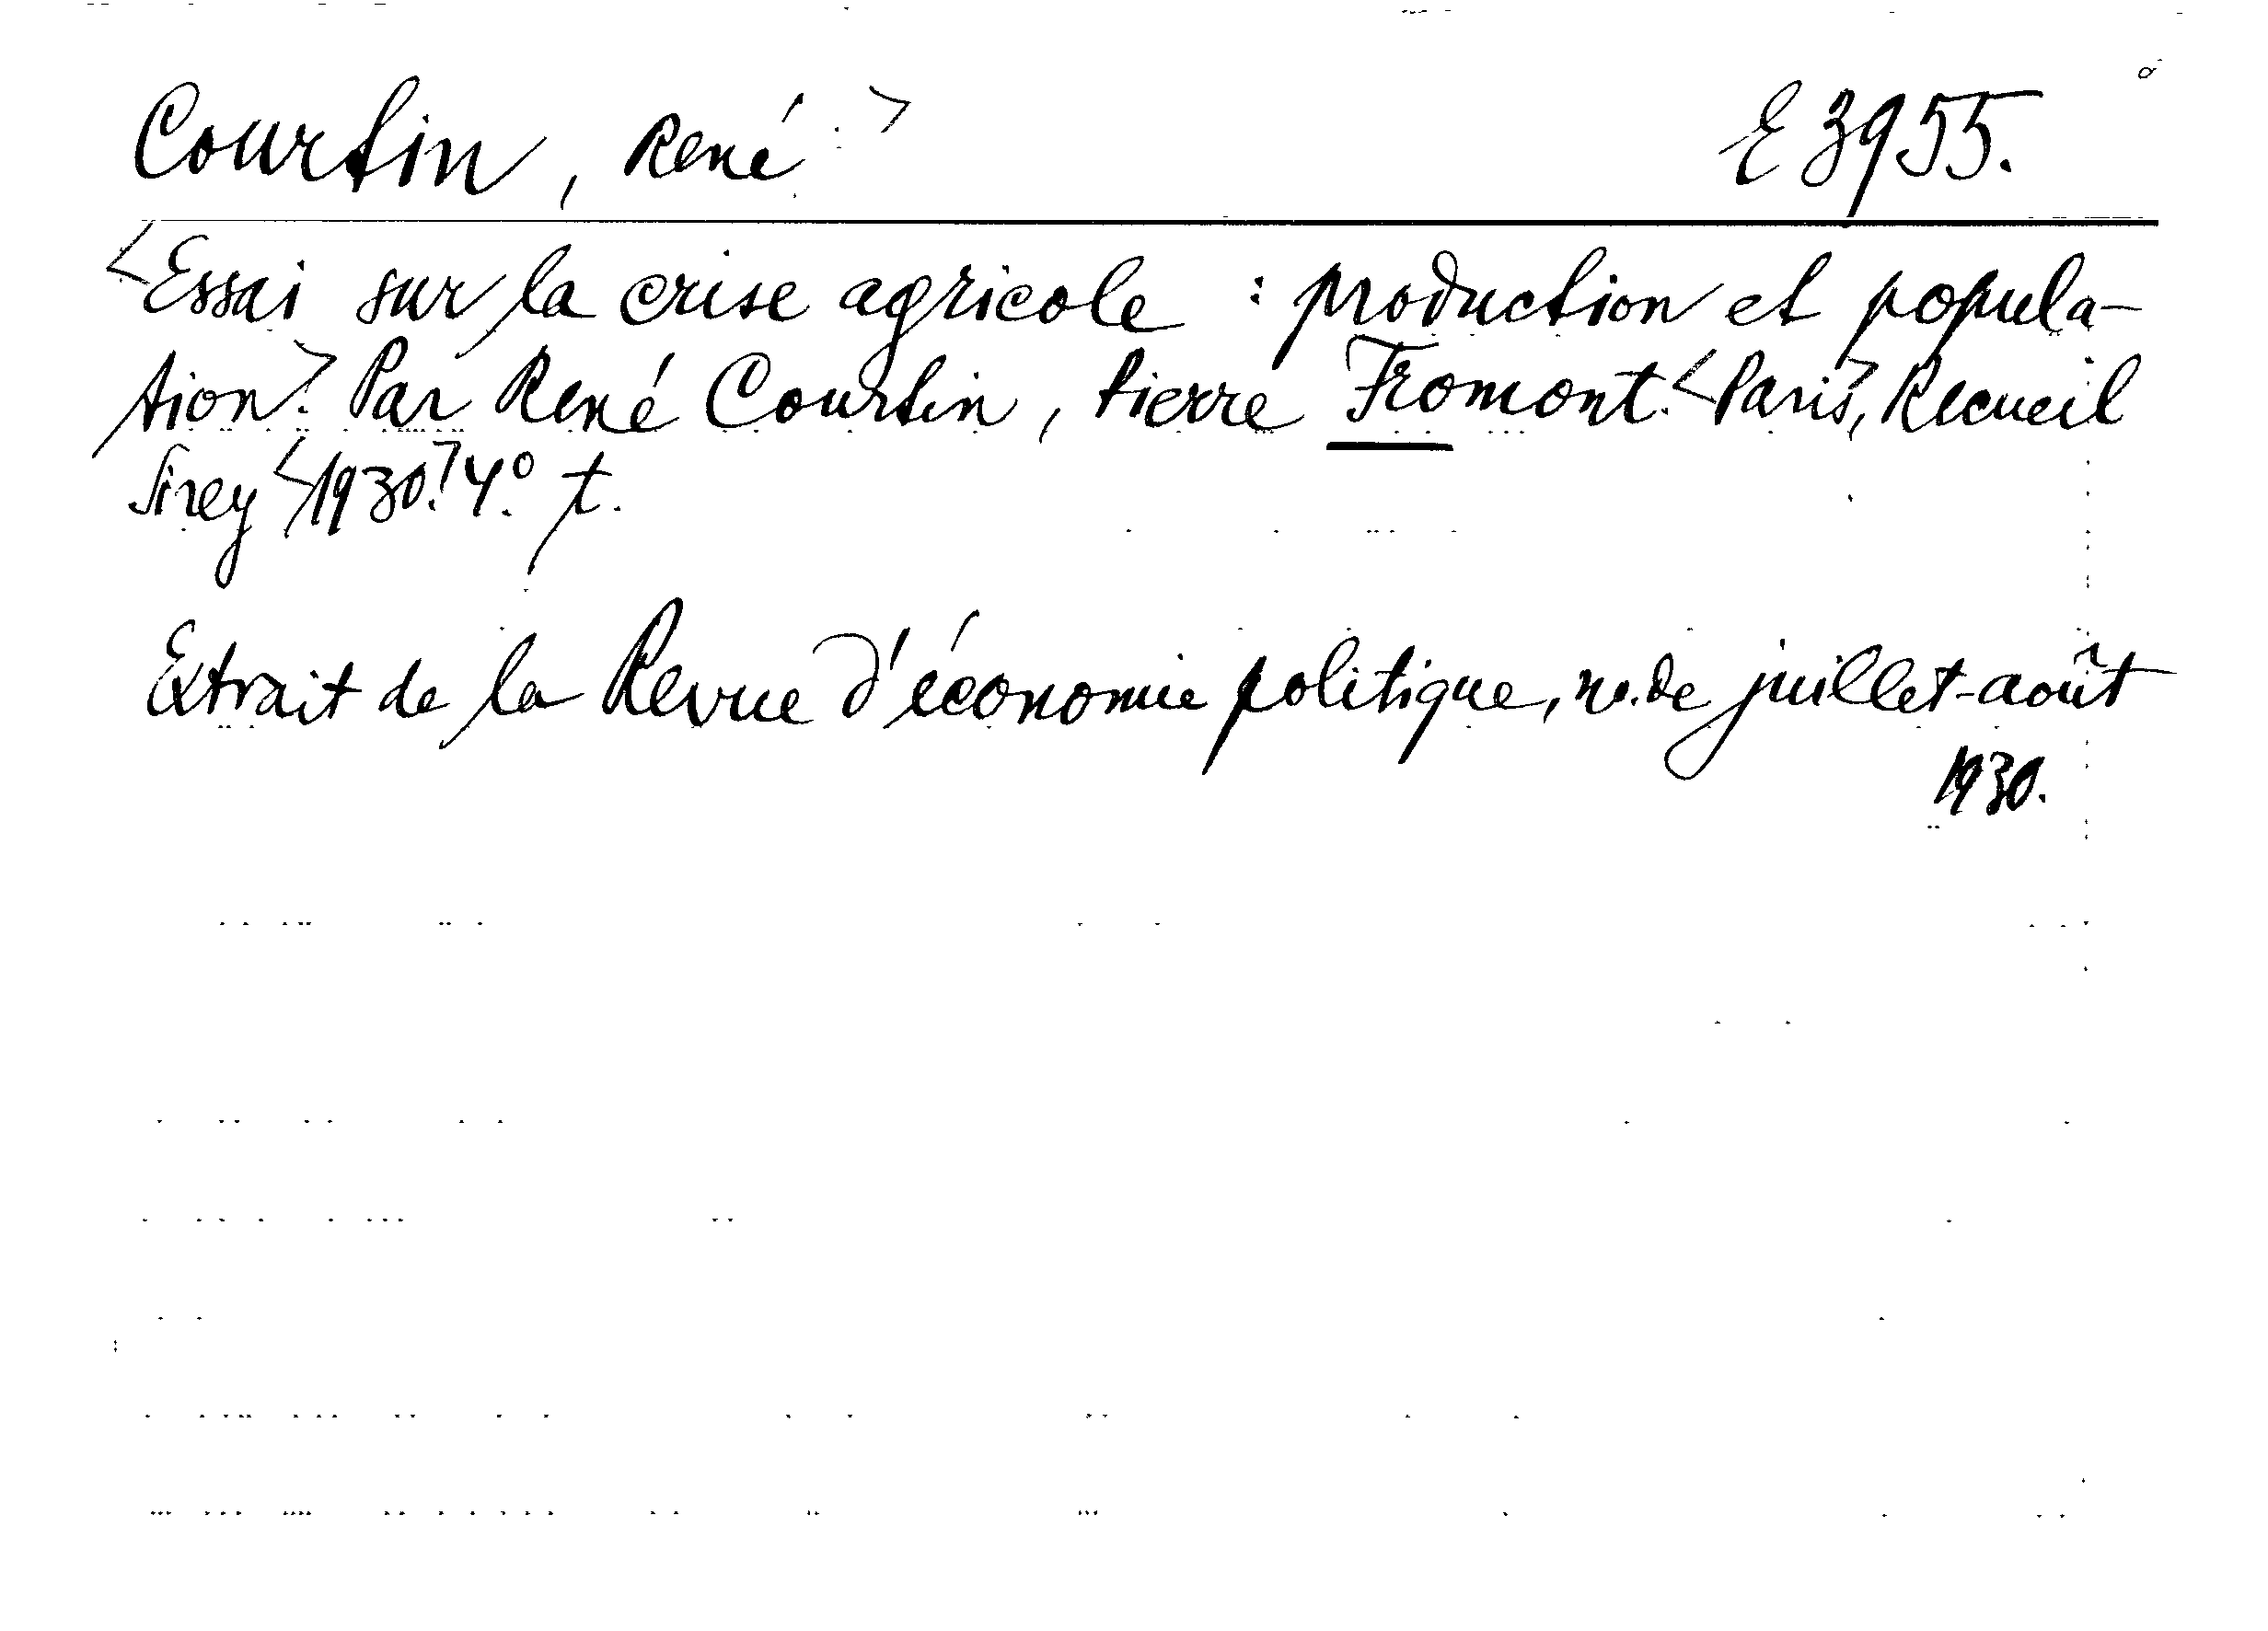 Courtin, René > E 3955.
<Essai sur la crise agricole : production et popula-
tion.> Par René Courtin, Pierre Fromont. <Paris>, Recueil
Sirey <1930.> 4°. t.
Extrait de la Revue d'économie politique, no. de juillet-août
1930.